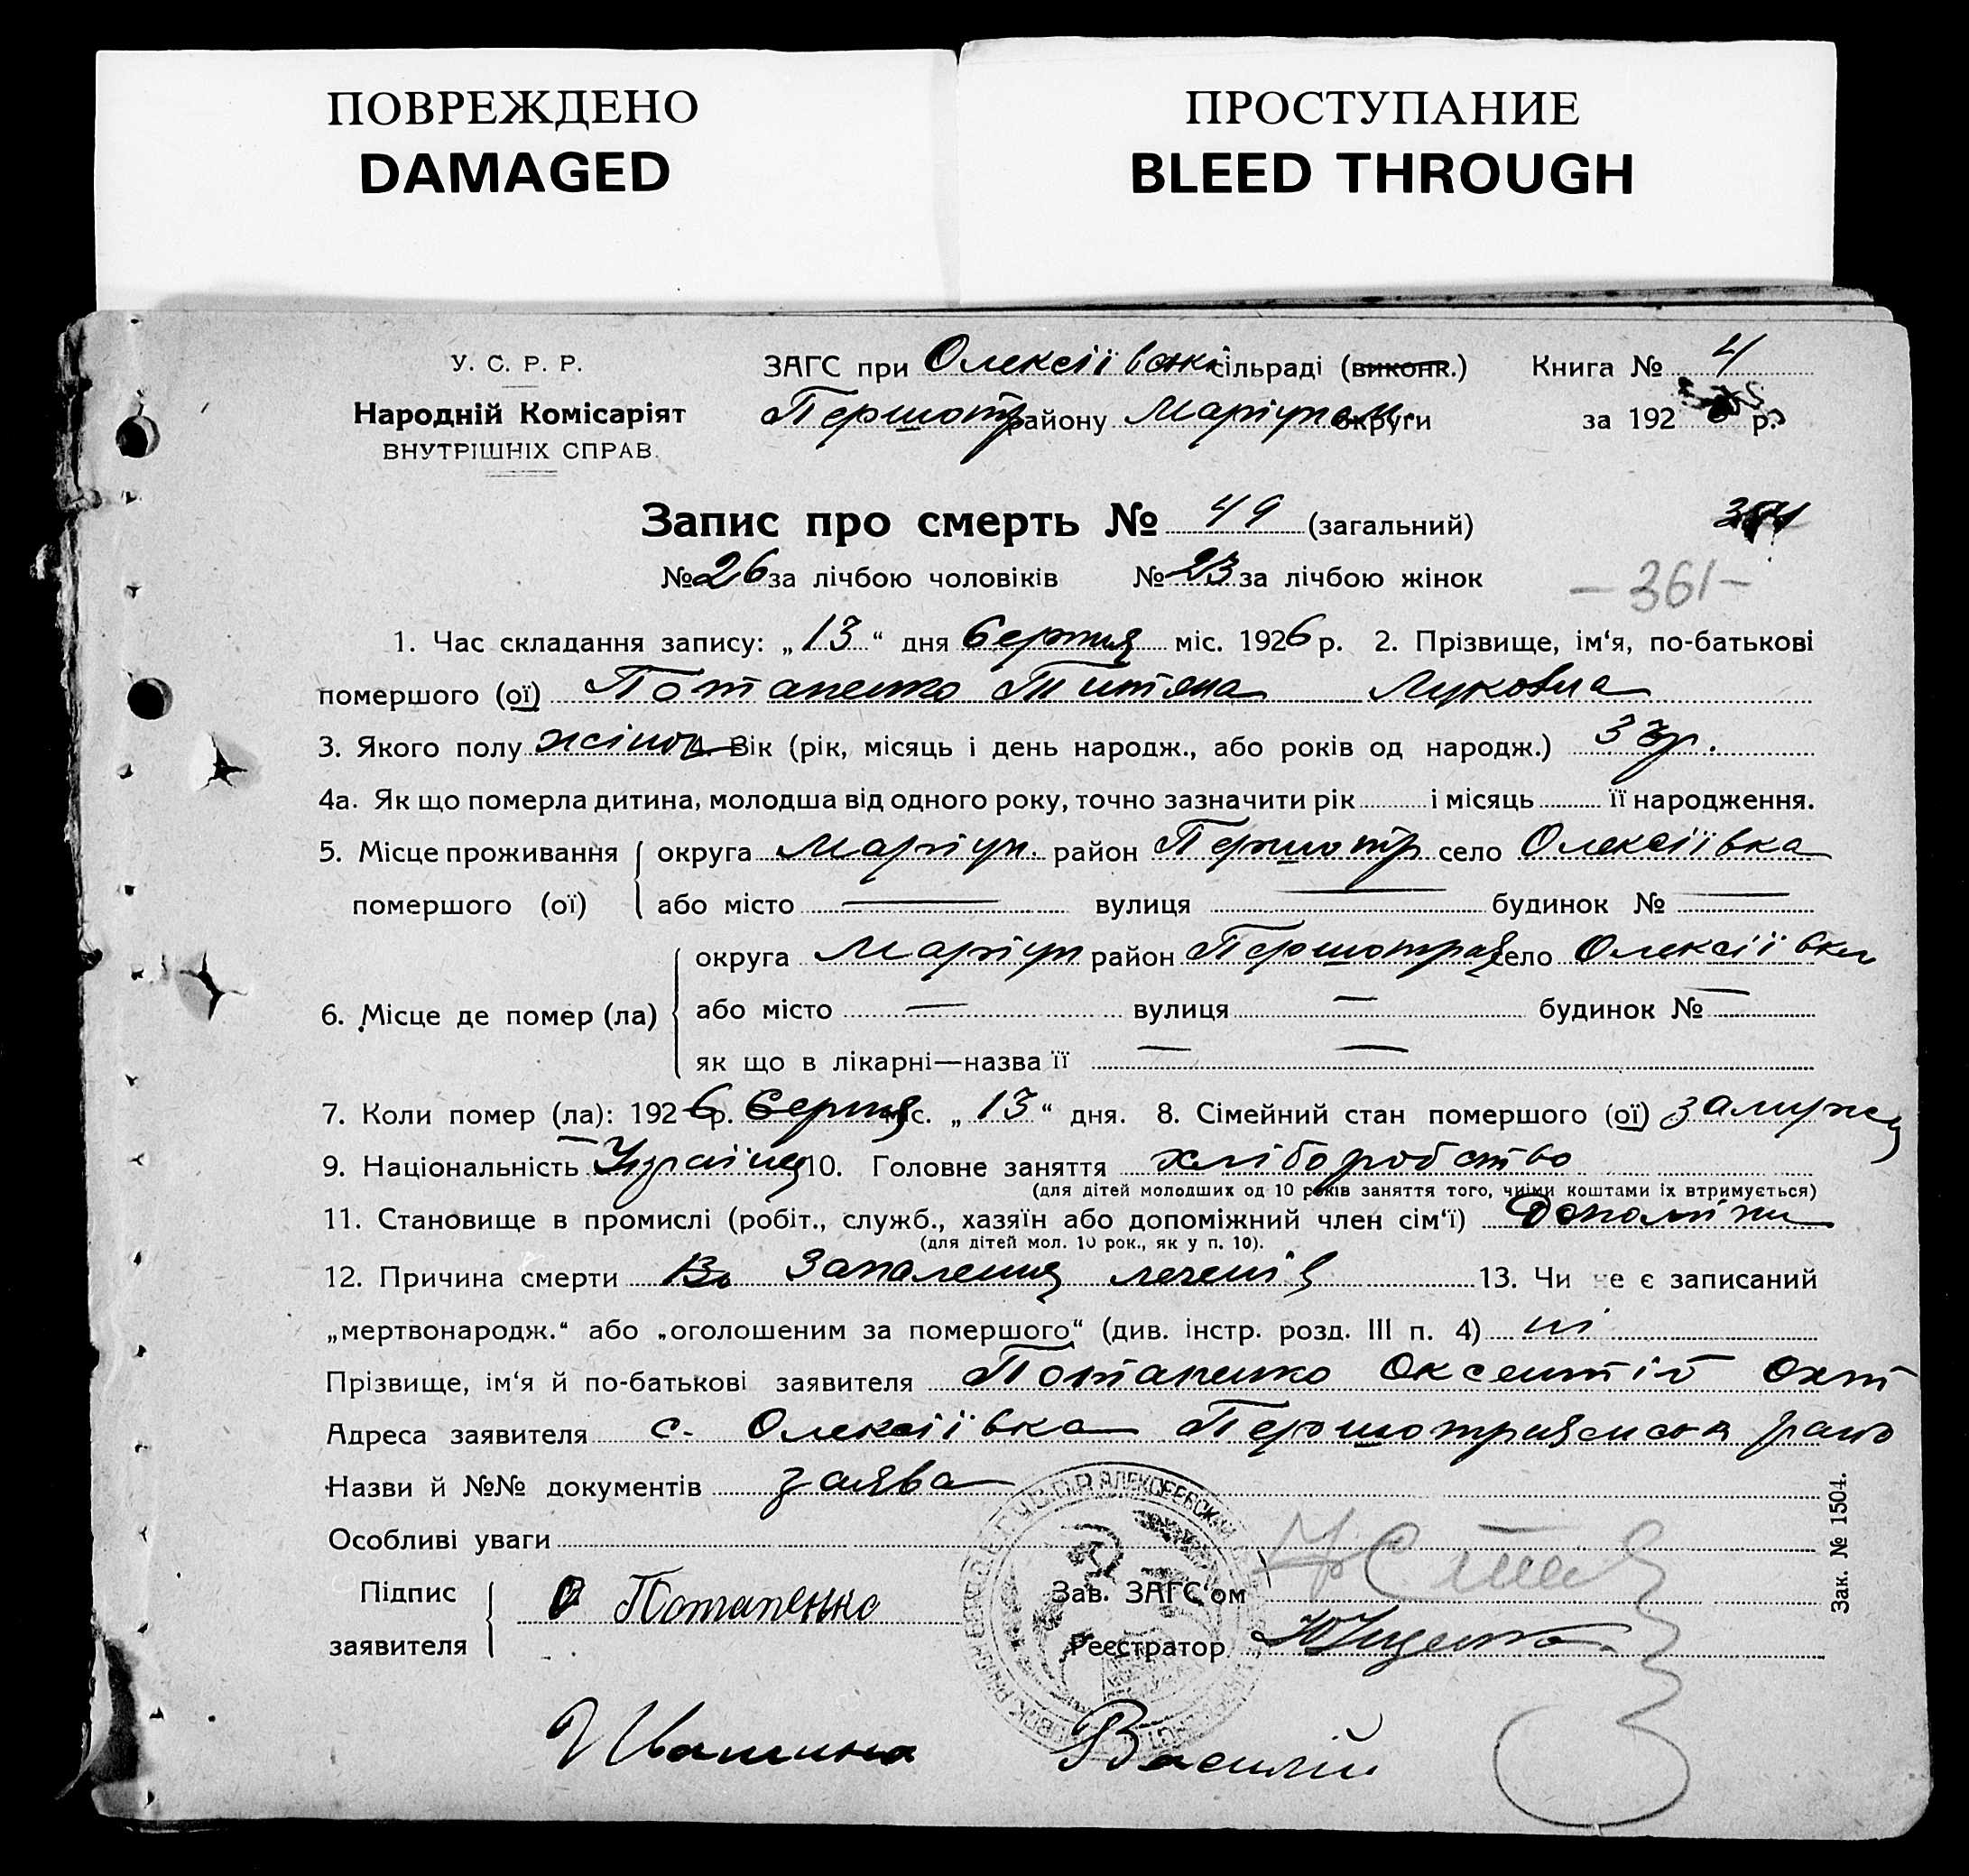 ПОВРЕЖДЕНО
DAMAGED
ПРОСТУПАНИЕ
BLEED THROUGH
У. С. Р. Р.
Народній Комісаріят
ВНУТРІШНІХ СПРАВ.
ЗАГС при Олексіївській сільраді (виконк.) Книга № 4
Першотр району Маріупол. округи за 192 р.
Запис про смерть № 49 (загальний)
№ 26 за лічбою чоловіків № 23 за лічбою жінок
- 361 -
1. Час складання запису: „13“ дня Серпня міс. 1926 р. 2. Прізвище, ім‘я, по-батькові
помершого (ої) Потапенко Титяна Луковна
3. Якого полу жіноч 4. Вік (рік, місяць і день народж., або років од народж.) 33р.
4а. Як що померла дитина, молодша від одного року, точно зазначити рік і місяць її народження.
5. Місце проживання помершого (ої) округа Маріуп. район Першотр село Олексіївка
або місто — вулиця — будинок № —
6. Місце де помер (ла) округа Маріуп район Першотрав село Олексіївка
або місто — вулиця — будинок № —
як що в лікарні—назва її — —
7. Коли помер (ла): 1926 р. Серпня міс. „13“ дня. 8. Сімейний стан помершого (ої) замужня
9. Національність Україн 10. Головне заняття хліборобство
(для дітей молодших од 10 років заняття того, чиїми коштами їх втримується)
11. Становище в промислі (робіт., служб., хазяїн або допоміжний член сім‘ї) Допоміжн
(для дітей мол. 10 рок., як у п. 10).
12. Причина смерти Запалення легенів 13. Чи не є записаний
„мертвонародж.“ або „оголошеним за помершого“ (див. інстр. розд. III п. 4) ні
Прізвище, ім‘я й по-батькові заявителя Потапенко Оксентій Охт
Адреса заявителя с. Олексіївка Першотравенськ район
Назви й №№ документів заява
Особливі уваги
Підпис заявителя О Потапенко
Зав. ЗАГС‘ом
Реєстратор
Ивашина Василій
Зак. № 1504.